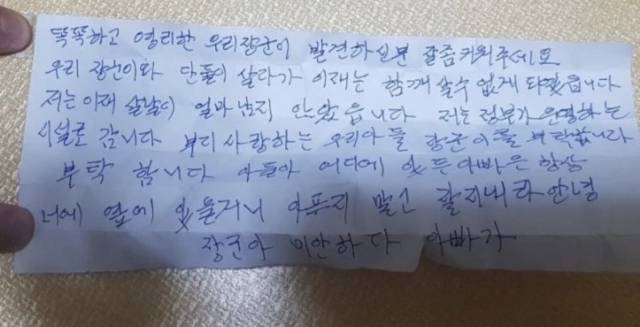 똑똑하고 영리한 우리장군이 발견하신분 잘좀키워주세요
우리 장군이와 단둘이 살다가 이재는 함께 살수 없게 되었읍니다
저는 이재 살날이 얼마 남지 안았읍니다 저는 정부가 운영하는
시설로 갑니다 부디 사랑하는 우리아들 장군이를 부탁합니다
부탁 합니다 아들아 어디에 있든 아빠은 항상
너에 옆에 있을거니 아프지 말고 잘지내라 안녕
장군아 미안하다 아빠가